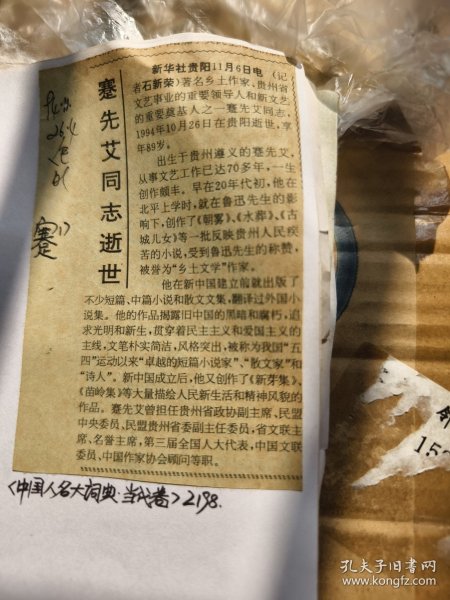 蹇先艾同志逝世
新华社贵阳11月6日电（记
者石新荣）著名乡土作家、贵州省
文艺事业的重要领导人和新文艺
的重要奠基人之一蹇先艾同志，
1994年10月26日在贵阳逝世，享
年89岁。
出生于贵州遵义的蹇先艾，
从事文艺工作已达70多年，一生
创作颇丰。早在20年代初，他在
北平上学时，就在鲁迅先生的影
响下，创作了《朝雾》、《水葬》、《古
城儿女》等一批反映贵州人民疾
苦的小说，受到鲁迅先生的称赞，
被誉为“乡土文学”作家。
他在新中国建立前就出版了
不少短篇、中篇小说和散文文集，翻译过外国小
说集。他的作品揭露旧中国的黑暗和腐朽，追
求光明和新生，贯穿着民主主义和爱国主义的
主线，文笔朴实简洁，风格突出，被称为我国“五
四”运动以来“卓越的短篇小说家”、“散文家”和
“诗人”。新中国成立后，他又创作了《新芽集》、
《苗岭集》等大量描绘人民新生活和精神风貌的
作品。蹇先艾曾担任贵州省政协副主席、民盟
中央委员、民盟贵州省委副主任委员，省文联主
席、名誉主席，第三届全国人大代表，中国文联
委员、中国作家协会顾问等职。
蹇
《中国人名大词典·当代卷》2198.
孔夫子旧书网
www.kongfz.com